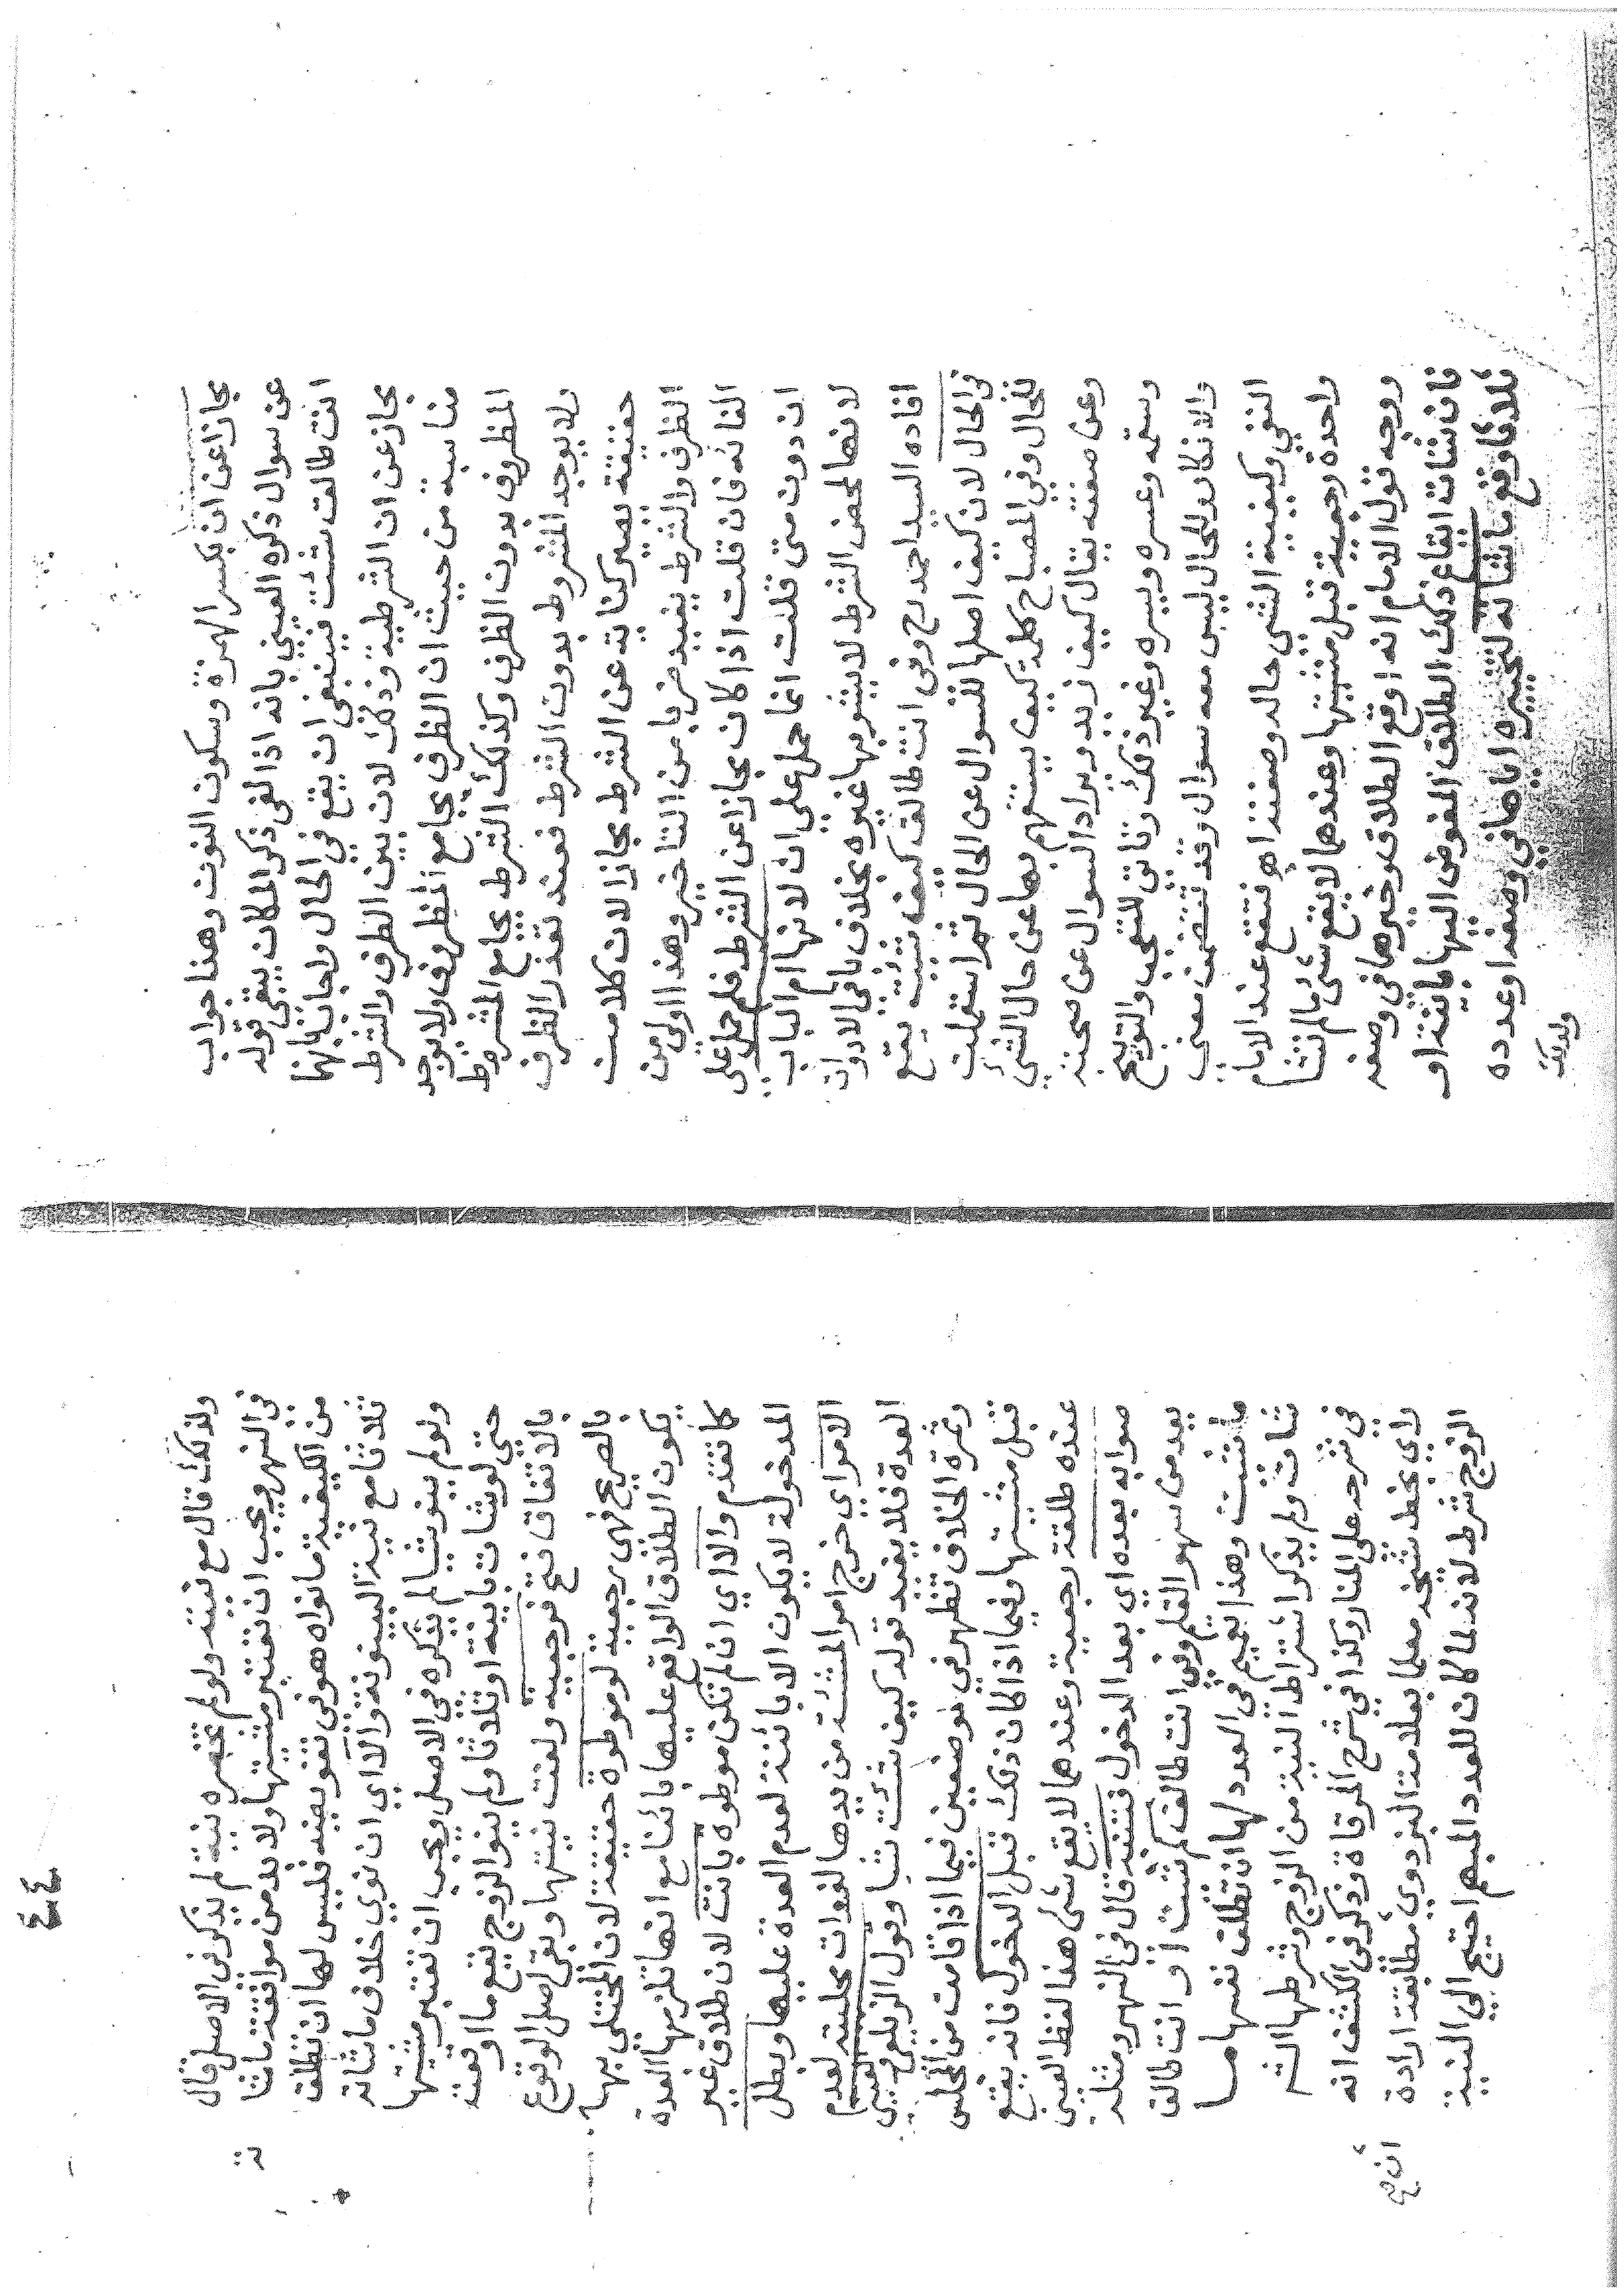 مجازا عن ان بكسر الهمزة وسكون النون وهذا جواب
عن سوال ذكره العيني بانه اذا لغى ذكر المكان يبقى قوله
انت طالق شئت فينبغى ان يقع في الحال واجاب بانها
مجاز عن ان الشرطية وذلك لان بين الظرف والشرط
مناسبة من حيث ان الظرف يجامع المظروف ولا يوجد
المظروف بدون الظرف وكذلك الشرط يجامع المشروط
ولا يوجد المشروط بدون الشرط فعند تعذر الظرف
حقيقة يصير كناية عن الشرط مجازا لان كلا من
الظرف والشرط يفيد ضربا من التاخير وهذا اولى من
الغائه فان قلت اذا كان مجازا عن الشرط فلم حمل على
ان دون متى قلت انما حمل على ان لانها ام الباب
لانها لمحض الشرط لا يشوبها غيره بخلاف باقي الادوات
افاده السيد احمد رح وفى انت طالق كيف شئت يقع
في الحال لان كيف اصلها للسوال عن الحال ثم استعملت
للحال وفي المصباح كلمة كيف يستفهم بها عن حال الشئ
وعن صفته يقال كيف زيد ويراد السوال عن صحته
وسقمه وعسره ويسره وغير ذلك وتاتى للتعجب والتوبيخ
والانكار والحال ليس معه سوال وقد تتضمن معنى
النفي وكيفية الشئ حاله وصفته اهـ فتقع عند الامام
واحدة رجعية قبل مشيتها وعندهما لا يقع شئ ما لم تشأ
ووجه قول الامام انه اوقع الطلاق وخيرها في وصفه
فان شاءت ايقاع ذلك الطلاق المفوض اليها بائنة او
ثلاثا وقع ما شاءته لتخييره اياها في وصفه وعدده
ولذلك
ولذلك قال مع نيته ولو لم تحضره نية لم يذكر في الاصل قال
في النهر ويجب ان تعتبر مشيتها ولا بد من موافقته ما شا
من الكيفية ما نواه هو في تفويضه فليس لها ان تطلق
ثلاثا مع نية البينونة والا اي ان نوي خلاف ما شاته
ولو لم ينو شيا لم يذكره في الاصل ويجب ان تعتبر مشيتها
حتى لو شات بائنة او ثلاثا ولم ينو الزوج يقع ما اوقعت
بالاتفاق فتح فرجعية ولغت نيتها وبقى اصل الوقوع
بالصريح فهى رجعية لو موطوة حقيقة لان المختلى بها
يكون الطلاق الواقع عليها بائنا مع انها تلزمها العدة
كما تقدم والا اي ان لم تكن موطوة بانت لان طلاق غير
المدخولة لا يكون الا بائنة لعدم العدة عليها وبطل
الامر اي خرج امر المشئة من يدها لفوات محليته لعدم
العدة فلا يفيد قوله كيف شئت شيا وقول الزيلعي والعيني
وثمرة الخلاف تظهر في موضعين فيما اذا قامت من المجلس
قبل مشيتها وفيما اذا كان ذلك قبل الدخول فانه يقع
عنده طلقة رجعية وعندهما لا يقع شئ هذا لفظ العيني
صوابه بعده اي بعد الدخول فتنبه قال في النهر ومثله
يعد من سهو القلم وفي انت طالق كم شئت او انت طالق
ما شئت وهذا يعم في العدد لها ان تطلق نفسها ما
شات ولم يذكر اشتراط النية من الزوج وشرطها الش
في شرحه على المنار وكذا في شرح المرقاة وذكر في الكشف انه
راي بخط شيخه معلما بعلامة البزدوي مطابقة ارادة
ان صح
الزوج شرط لانه لما كان للعدد المبهم احتيج الى النية